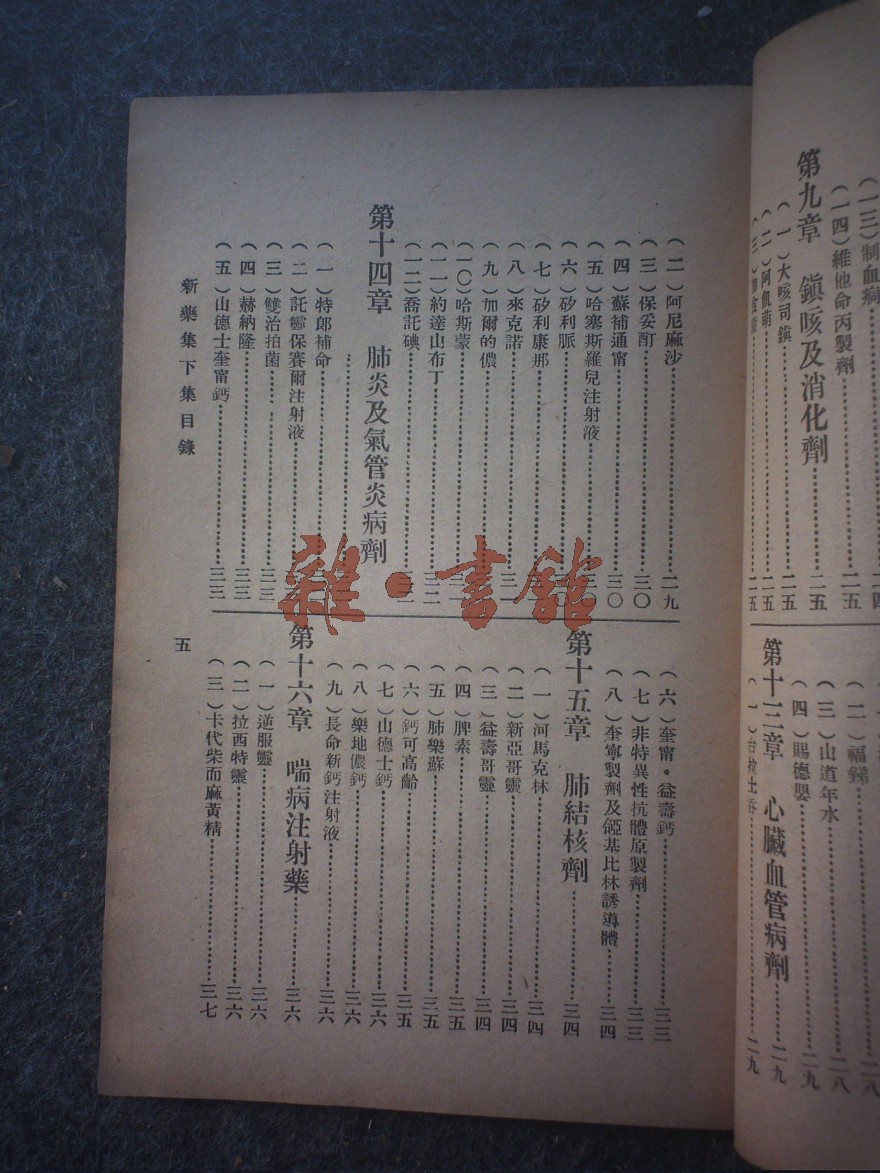 (一三)制血痢
(一四)維他命丙製劑……二五
第九章 鎮咳及消化劑……二五
(一)大咳司鎮……二五
(二)阿血萌……二五
(二)福錦……二八
(三)山道年水……二八
(四)賜德嬰……二九
第十三章 心臟血管病劑……二九
(二)阿尼麻沙……二九
(三)保妥酊……三〇
(四)蘇補通甯……三〇
(五)哈塞斯羅兒注射液……三〇
(六)矽利脈
(七)矽利康那
(八)來克諾
(九)加爾的儂
(一〇)哈斯蒙
(一一)約達山布丁……三二
(一二)喬託碘
第十四章 肺炎及氣管炎病劑
(一)特郎補命
(二)託靈保賽爾注射液
(三)雙治拍菌……三三
(四)赫納隆……三三
(五)山德士奎甯鈣……三三
(六)奎甯·益壽鈣……三三
(七)非特異性抗體原製劑……三三
(八)奎寧製劑及䥑基比林誘導體……三四
第十五章 肺結核劑……三四
(一)河馬克林……三四
(二)新亞哥靈……三四
(三)益壽哥靈……三四
(四)脾素……三五
(五)肺樂蘇……三五
(六)鈣可高齡……三五
(七)山德士鈣……三六
(八)樂地儂鈣……三六
(九)長命新鈣注射液……三六
第十六章 喘病注射藥……三六
(一)逆服靈……三六
(二)拉西特靈……三六
(三)卡代柴而麻黃精……三七
新藥集下集目錄
五
雜·書館